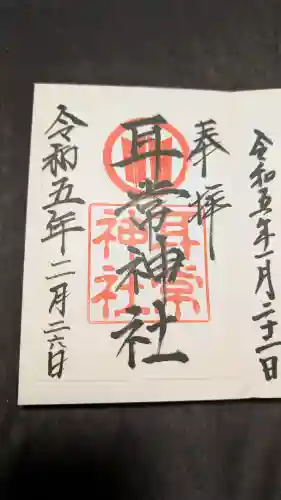 令和五年一月二十一日
奉拝
耳常神社
耳常
神社
令和五年二月二六日